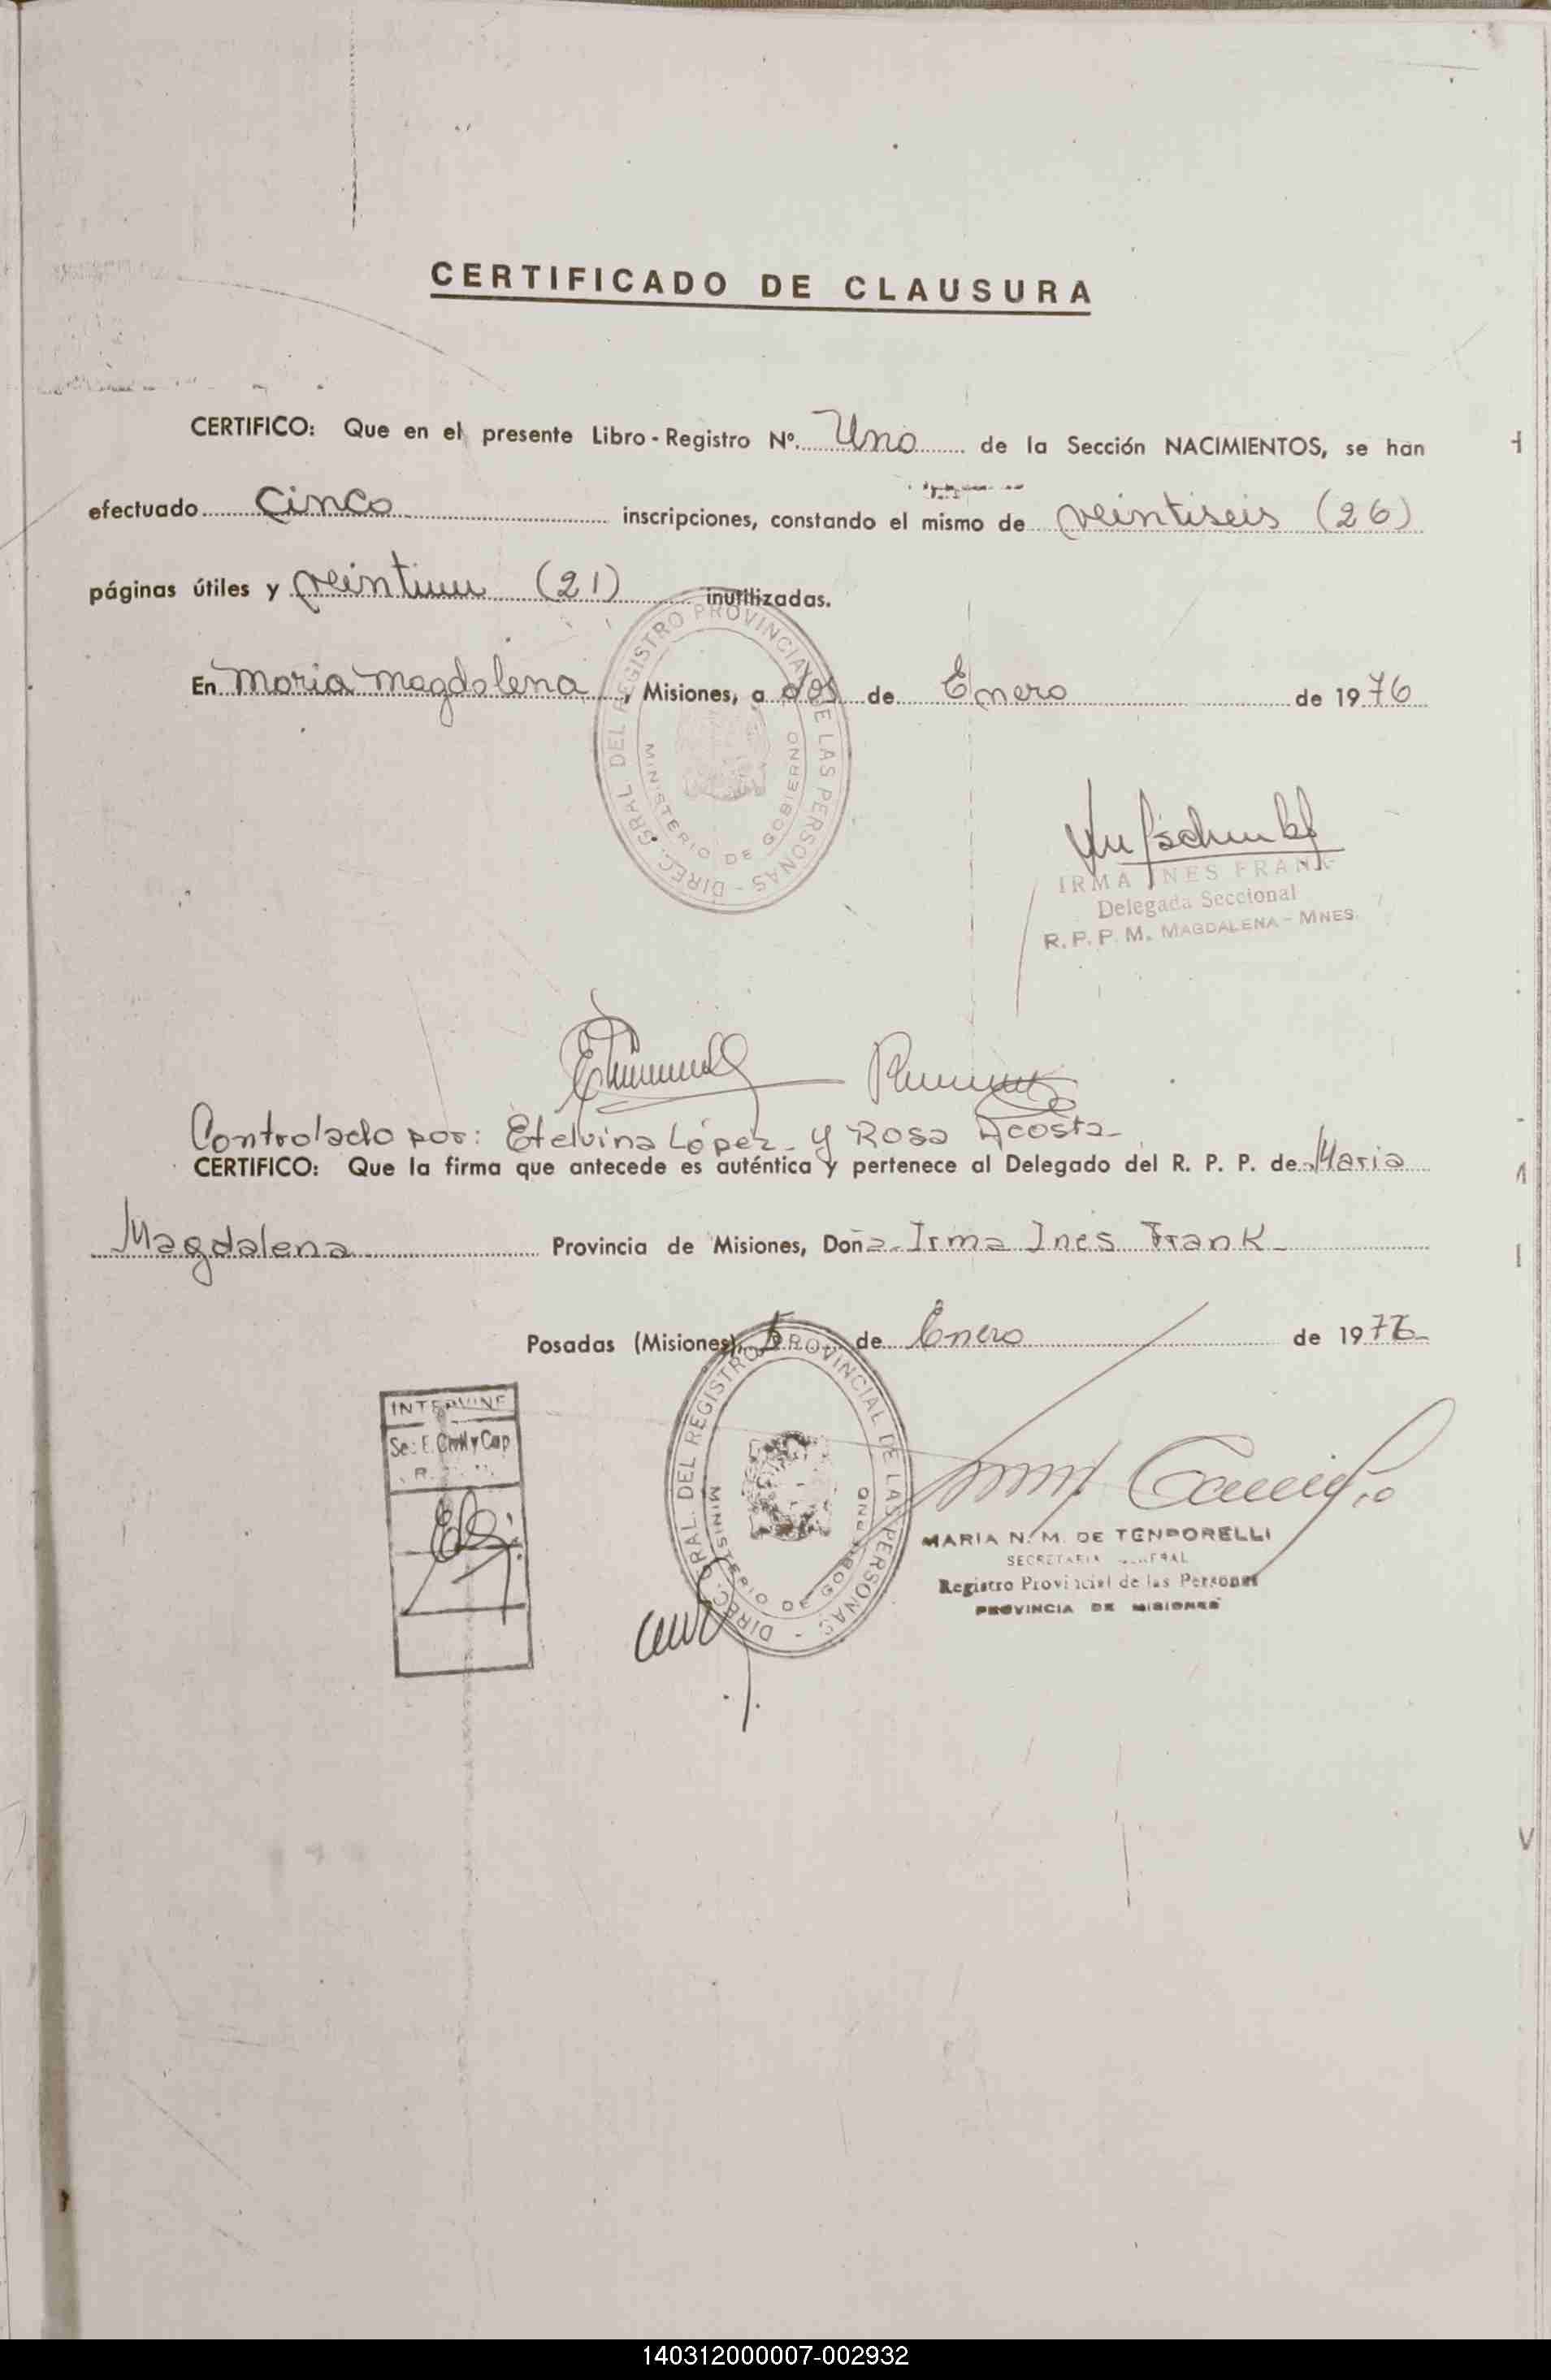 CERTIFICADO DE CLAUSURA
CERTIFICO: Que en el presente Libro - Registro Nº. Uno de la Sección NACIMIENTOS, se han
efectuado Cinco inscripciones, constando el mismo de veintiseis (26)
páginas útiles y veintiun (21) inutilizadas.
En Maria Magdalena, Misiones, a dos de Enero de 1976
DIREC. GRAL. DEL REGISTRO PROVINCIAL DE LAS PERSONAS -
MINISTERIO DE GOBIERNO
IRMA INES FRANK
Delegada Seccional
R. P. P. M. MAGDALENA - MNES.
Controlado por: Etelvina López y Rosa Acosta
CERTIFICO: Que la firma que antecede es auténtica y pertenece al Delegado del R. P. P. de Maria
Magdalena Provincia de Misiones, Doña Irma Ines Frank
Posadas (Misiones), 5 de Enero de 1976
DIREC. GRAL. DEL REGISTRO PROVINCIAL DE LAS PERSONAS -
MINISTERIO DE GOBIERNO
INTERVINE
Sec. E. Civil y Cap
MARIA N. M. DE TEMPORELLI
SECRETARIA GENERAL
Registro Provincial de las Personas
PROVINCIA DE MISIONES
140312000007-002932